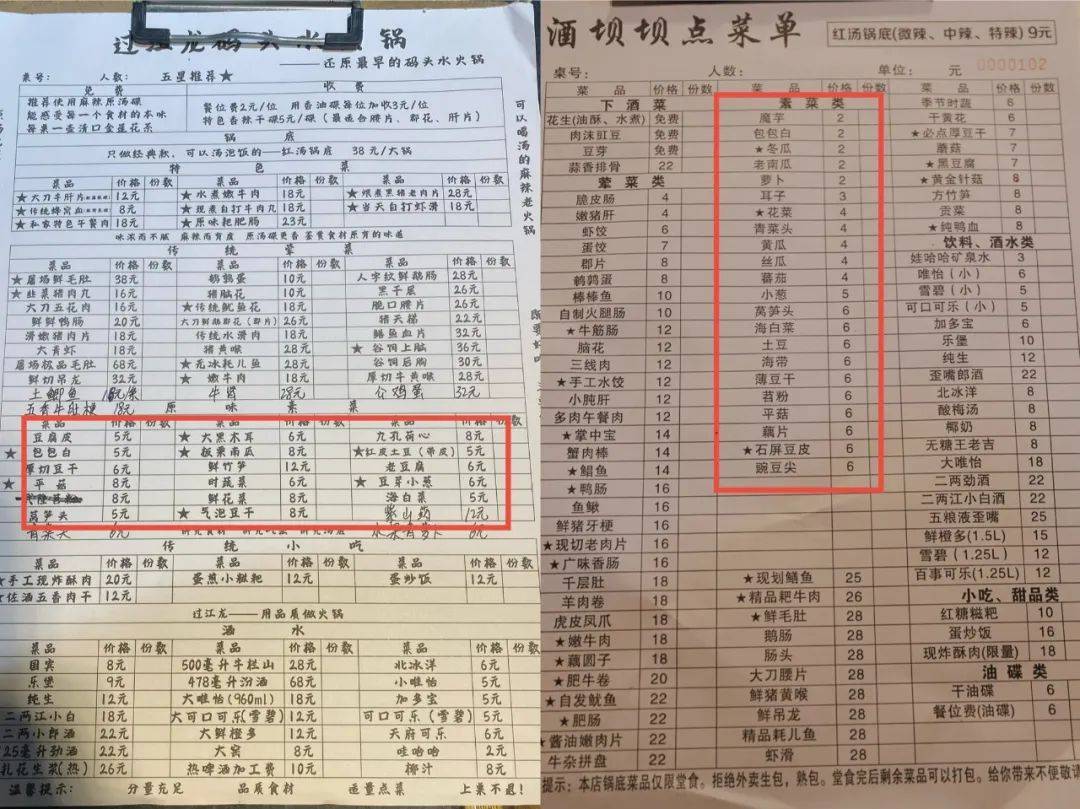 过江龙码头水火锅
——还原最早的码头水火锅
桌号： 人数： 五星推荐★
免费 收费
推荐使用麻辣原汤碟
能感受每一个食材的本味
每桌一壶清口金星花茶
餐位费2元/位 用香油碟每位加收3元/位
特色香辣干碟5元/碟（最适合腰片、郡花、肝片）
可以喝汤的麻辣老火锅
锅底
只做经典款，可以汤泡饭的——红汤锅底 38元/大锅
特色菜
菜品 价格 份数 菜品 价格 份数 菜品 价格 份数
★大刀牛肝片 12元 ★水煮嫩牛肉 18元 ★煨煮黑猪老肉片 28元
★传统蜂窝血 8元 ★现煮自打牛肉丸 18元 ★当天自打虾滑 18元
★私家特色午餐肉 18元 ★原味粑肥肠 23元
传统荤菜
菜品 价格 份数 菜品 价格 份数 菜品 价格 份数
★屠场鲜毛肚 38元 鹌鹑蛋 10元 人字纹鲜鹅肠 28元
★韭菜猪肉丸 16元 猪脑花 10元 黑千层 26元
大刀五花肉 16元 ★传统鱿鱼花 18元 脆口腰片 26元
鲜鲜鸭肠 20元 大刀鲜鹅郡花（郡片） 26元 猪天梯 22元
滑嫩猪肉片 18元 传统水滑肉 18元 鳝鱼血片 32元
大青虾 18元 猪黄喉 28元 ★谷饲上脑 36元
屠场极品毛肚 68元 ★无冰耗儿鱼 28元 谷饲后胸 30元
鲜切吊龙 32元 ★嫩牛肉 18元 厚切牛黄喉 28元
土鲫鱼 牛筋 28元 32元
五香牛肚梗 18元
原味素菜
菜品 价格 份数 菜品 价格 份数 菜品 价格 份数
豆腐皮 5元 ★大黑木耳 6元 九孔荷心 8元
★包包白 5元 ★板栗南瓜 8元 ★红皮土豆（带皮） 5元
厚切豆干 6元 鲜竹笋 12元 老豆腐 6元
★平菇 8元 时蔬菜 6元 ★豆芽小葱 6元
8元 鲜花菜 8元 海白菜 5元
莴笋头 5元 ★气泡豆干 8元 紫山药 12元
青菜头 6元 6元
传统小吃
菜品 价格 份数 菜品 价格 份数 菜品 价格 份数
★手工现炸酥肉 20元 蛋煎小糍粑 12元 蛋炒饭 12元
★佐酒五香肉干 12元
过江龙——用品质做火锅
酒水
菜品 价格 份数 菜品 价格 份数 菜品 价格 份数
国宾 8元 500毫升牛栏山 28元 北冰洋 6元
乐堡 9元 478毫升汾酒 68元 小唯怡 5元
纯生 12元 大唯怡(960ml) 18元 加多宝 5元
二两江小白 18元 大可口可乐(雪碧) 12元 可口可乐（雪碧） 5元
二两小郎酒 22元 大鲜橙多 12元 天府可乐 6元
25毫升劲酒 22元 大窑 8元 哇哈哈 2元
扎花生浆(热) 26元 热啤酒加工费 10元 椰汁 8元
温馨提示： 分量充足 品质食材 适量点菜 上桌不退！
酒坝坝点菜单
红汤锅底(微辣、中辣、特辣) 9元
桌号： 人数： 单位： 元 0000102
菜品 价格 份数 菜品 价格 份数 菜品 价格 份数
下酒菜
花生(油酥、水煮) 免费
肉沫豇豆 免费
豆芽 免费
蒜香排骨 22
荤菜类
脆皮肠 4
嫩猪肝 4
虾饺 6
蛋饺 7
郡片 8
鹌鹑蛋 8
棒棒鱼 10
自制火腿肠 10
★牛筋肠 10
脑花 10
三线肉 12
★手工水饺 12
小肫肝 12
多肉午餐肉 12
★掌中宝 14
蟹肉棒 14
★鲳鱼 14
★鸭肠 14
鱼鳅 16
鲜猪牙梗 16
★现切老肉片 16
★广味香肠 16
千层肚 18
羊肉卷 18
虎皮凤爪 18
★嫩牛肉 18
★藕圆子 18
★肥牛卷 20
★自发鱿鱼 22
★肥肠 22
★酱油嫩肉片 22
牛杂拼盘 22
素菜类
魔芋 2
包包白 2
★冬瓜 2
老南瓜 2
萝卜 2
耳子 3
★花菜 4
青菜头 4
黄瓜 4
丝瓜 4
蕃茄 4
小葱 5
莴笋头 6
海白菜 6
土豆 6
海带 6
薄豆干 6
苕粉 6
平菇 6
藕片 6
★石屏豆皮 6
豌豆尖 6
★现划鳝鱼 25
★精品粑牛肉 26
★鲜毛肚 28
鹅肠 28
肠头 28
大刀腰片 28
鲜猪黄喉 28
鲜吊龙 28
精品耗儿鱼 28
虾滑 28
季节时蔬 6
干黄花 6
★必点厚豆干 7
蘑菇 7
★黑豆腐 7
★黄金针菇 8
方竹笋 8
贡菜 8
★纯鸭血 8
饮料、酒水类
娃哈哈矿泉水 3
唯怡（小） 6
雪碧（小） 5
可口可乐（小） 5
加多宝 6
乐堡 10
纯生 12
歪嘴郎酒 22
北冰洋 8
酸梅汤 8
椰奶 8
无糖王老吉 8
大唯怡 18
二两劲酒 22
二两江小白酒 22
五粮液歪嘴 25
鲜橙多(1.5L) 15
雪碧（1.25L） 12
百事可乐(1.25L) 12
小吃、甜品类
红糖糍粑 10
蛋炒饭 16
现炸酥肉(限量) 18
油碟类
干油碟 6
餐位费(油碟) 6
提示：本店锅底菜品仅限堂食。拒绝外卖生包，熟包。堂食完后剩余菜品可以打包。给你带来不便敬请